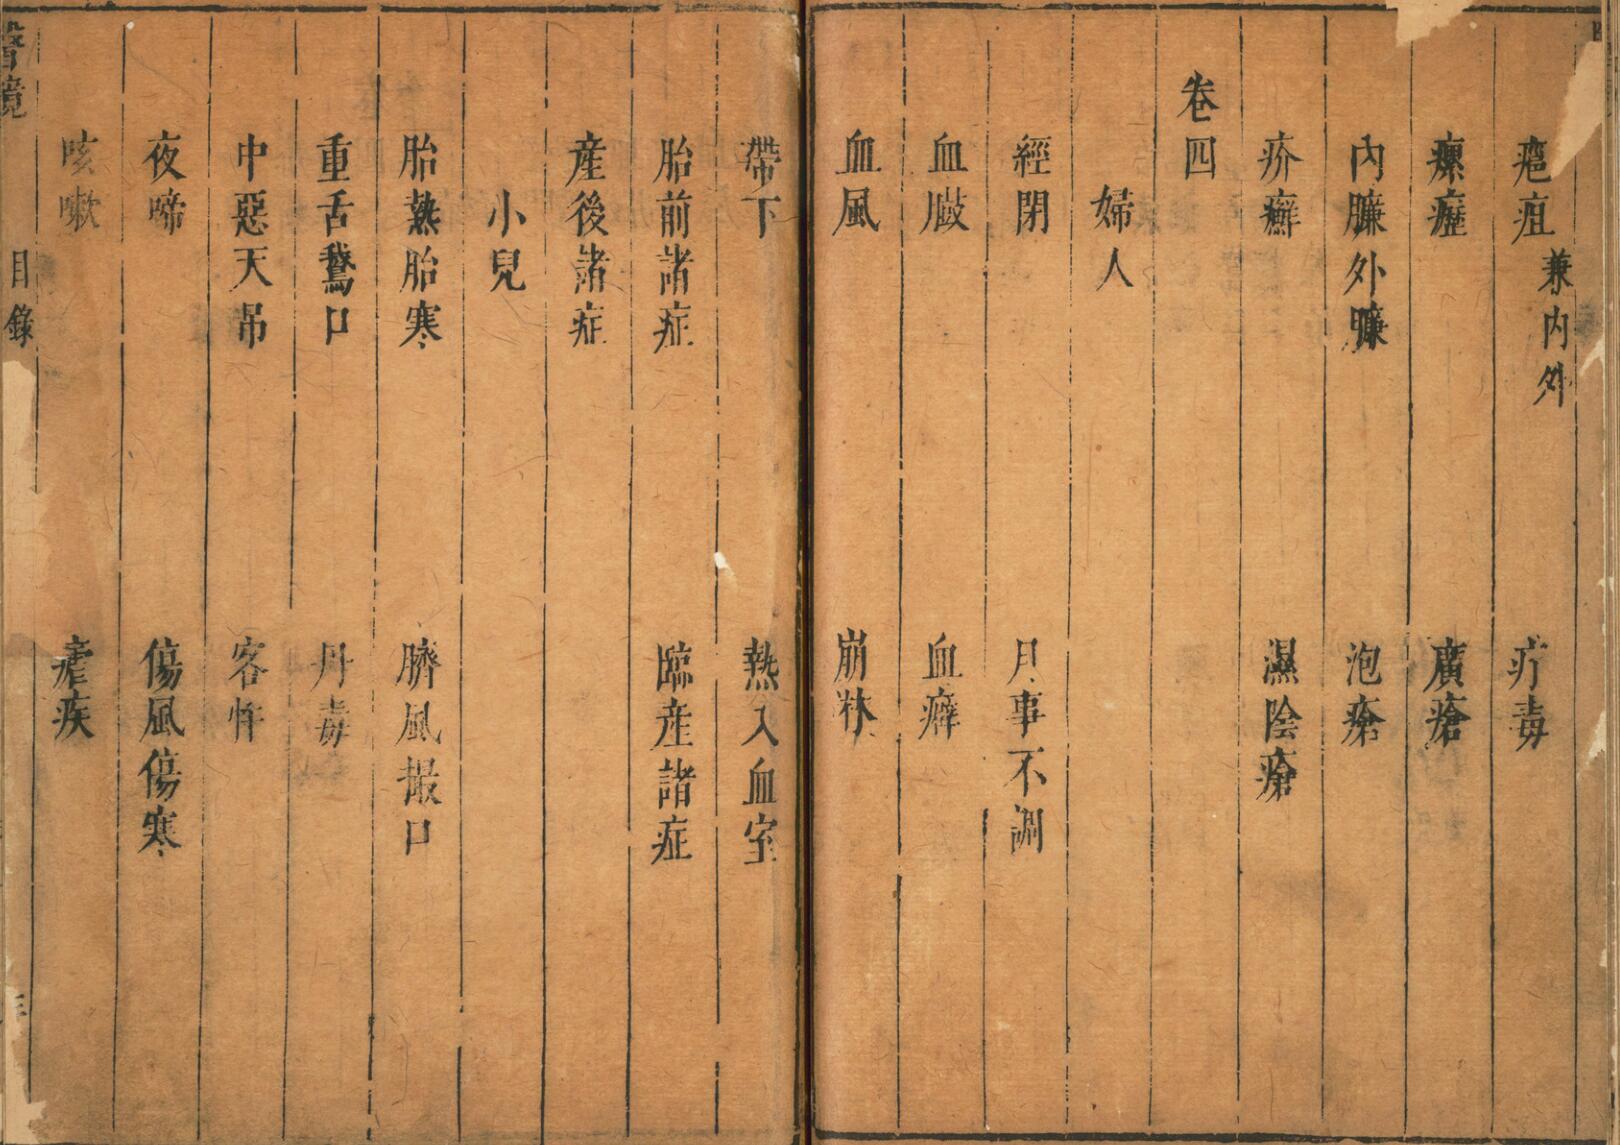 疤疽兼內外 疔毒
瘰癧 廣瘡
內臁外臁 泡瘡
疥癬 濕陰瘡
卷四
婦人
經閉 月事不調
血臌 血癖
血風 崩淋
帶下 熱入血室
胎前諸症 臨産諸症
産後諸症
小兒
胎熱胎寒 臍風撮口
重舌鵞口 丹毒
中惡天吊 客忤
夜啼 傷風傷寒
咳嗽 瘧疾
醫鏡 目錄